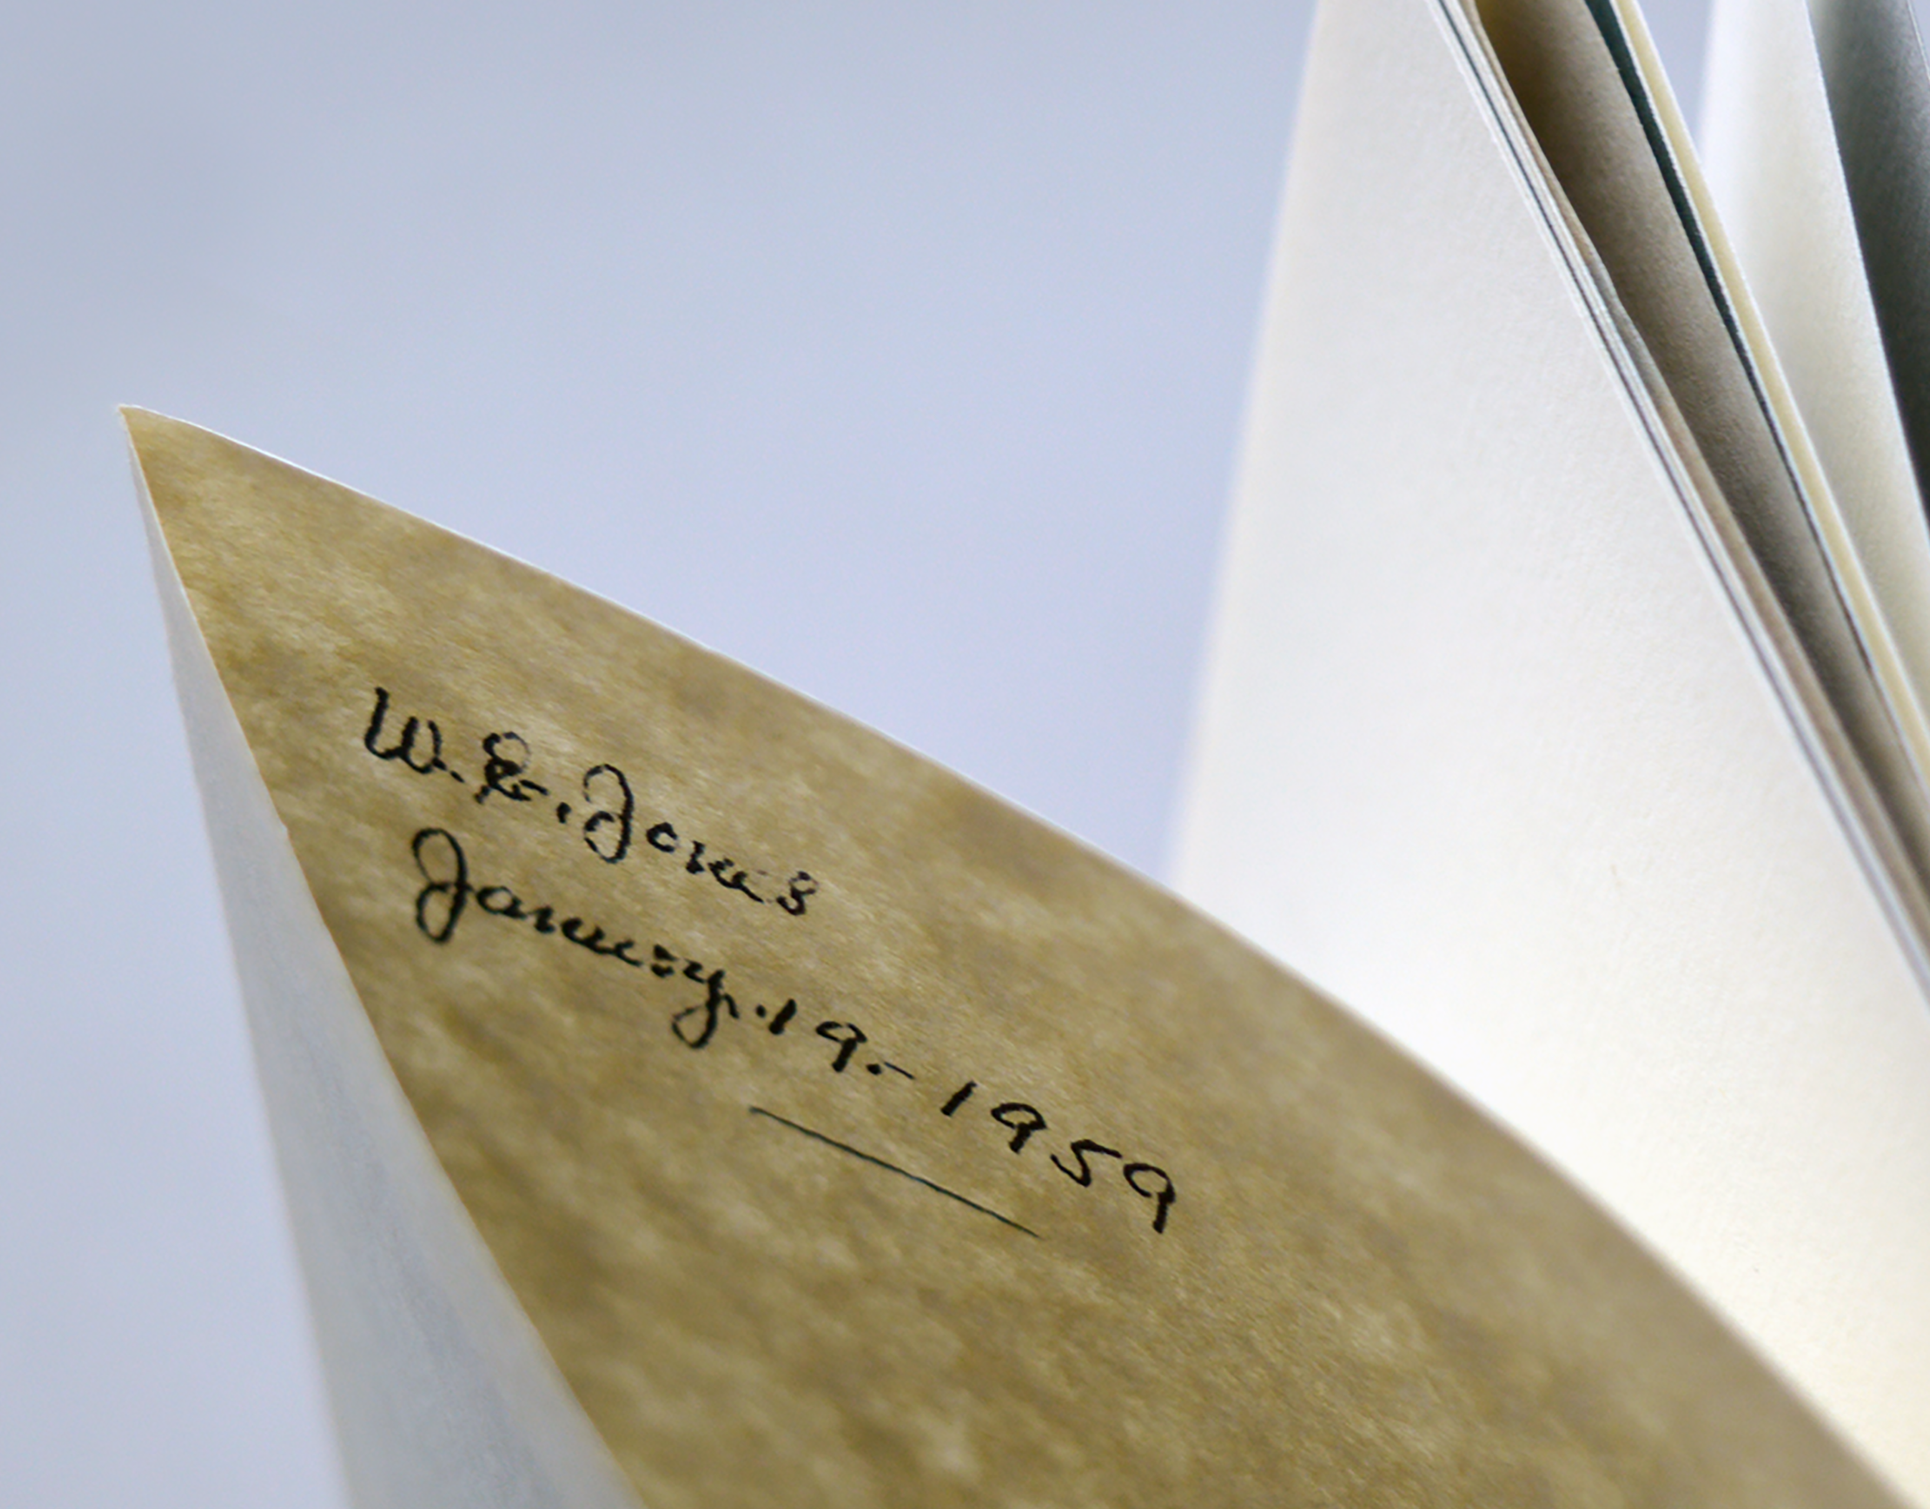 W. E. Jones
January. 19. - 1959